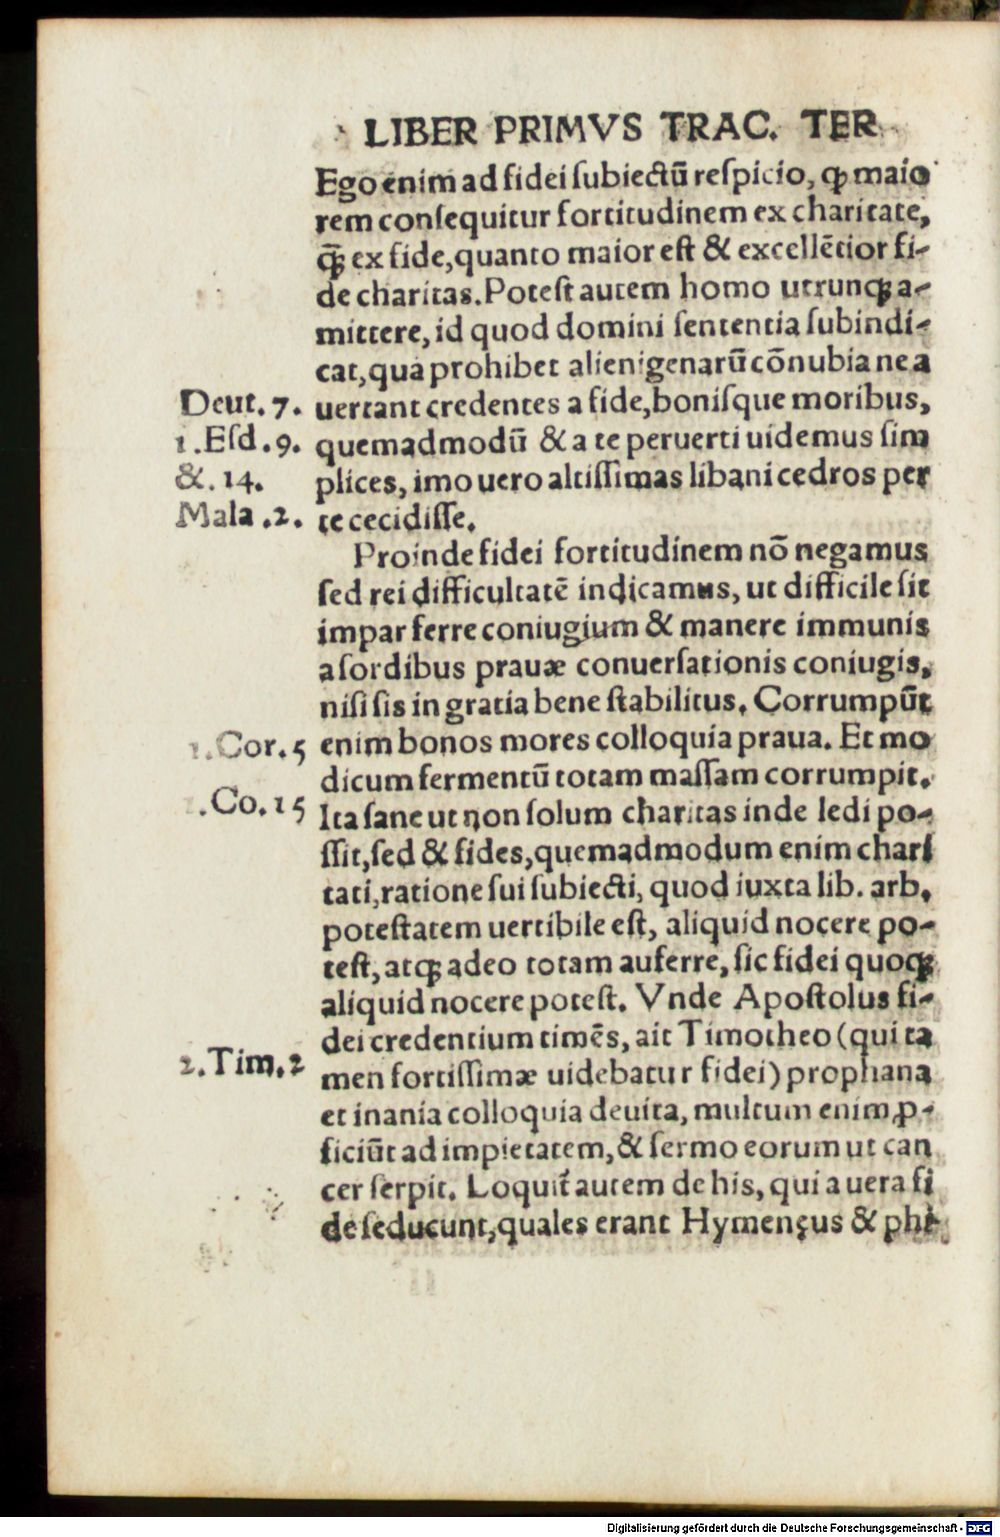 LIBER PRIMVS TRAC. TER
Ego enim ad fidei ſubiectū reſpicio, ꝙ maio
rem conſequitur fortitudinem ex charitate,
ꝙ̄ ex fide, quanto maior eſt & excellētior fi-
de charitas. Poteſt autem homo utrunqꝫ a-
mittere, id quod domini ſententia ſubindi-
cat, qua prohibet alienigenarū cōnubia ne a
Deut. 7. uertant credentes a fide, boniſque moribus,
1. Eſd. 9. quemadmodū & a te peruerti uidemus ſim
&. 14. plices, imo uero altiſſimas libani cedros per
Mala .2. te cecidiſſe.
Proinde fidei fortitudinem nō negamus
ſed rei difficultatē indicamus, ut difficile ſit
impar ferre coniugium & manere immunis
a ſordibus prauæ conuerſationis coniugis,
niſi ſis in gratia bene ſtabilitus. Corrumpūt
1. Cor. 5 enim bonos mores colloquia praua. Et mo
dicum fermentū totam maſſam corrumpit.
1. Co. 15 Ita ſane ut non ſolum charitas inde ledi po-
ſſit, ſed & fides, quemadmodum enim chari
tati, ratione ſui ſubiecti, quod iuxta lib. arb.
poteſtatem uertibile eſt, aliquid nocere po-
teſt, atqꝫ adeo totam auferre, ſic fidei quoqꝫ
aliquid nocere poteſt. Vnde Apoſtolus fi-
dei credentium timēs, ait Timotheo (qui ta
2. Tim. 2 men fortiſſimæ uidebatur fidei) prophana
et inania colloquia deuita, multum enim ꝓ-
ficiūt ad impietatem, & ſermo eorum ut can
cer ſerpit. Loquit̄ autem de his, qui a uera fi
de ſeducunt, quales erant Hymenęus & phi-
Digitalisierung gefördert durch die Deutsche Forschungsgemeinschaft - DFG